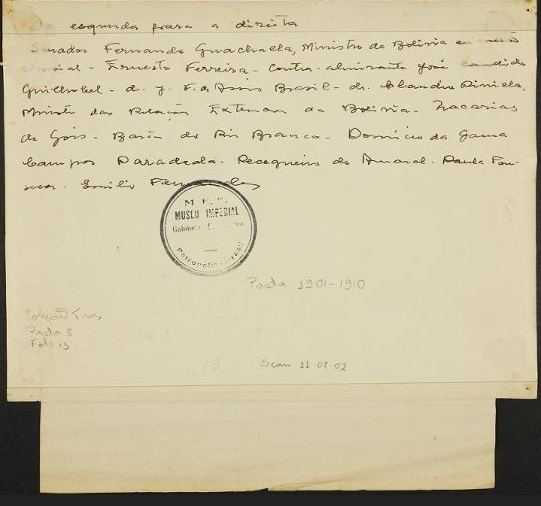 esquerda para a direita
Senador Fernando Guachalla, Ministro da Bolivia em missão
especial - Ernesto Ferreira - Contra-almirante José Candido
Guillobel - dr. J. F. de Assis Brasil - dr. Claudio Pinilla,
Ministro das Relações Exteriores da Bolivia - Zacarias
de Góis - Barão do Rio Branco - Domicio da Gama
Campos Paradeda - Pecegueiro do Amaral - Paula Fon-
seca - Emilio Fernandes
MUSEU IMPERIAL
Gabinete
Petropolis - Brasil
Pasta 1901-1910
Pasta 5
Foto 13
13
Scan 11 08-02